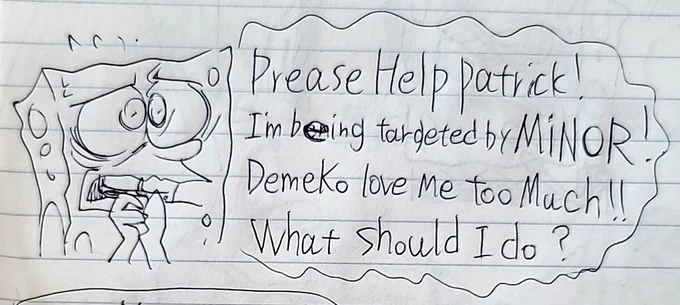 Prease Help patrick!
I'm being targeted by MiNOR!
Demeko love Me too Much!!
What should I do?